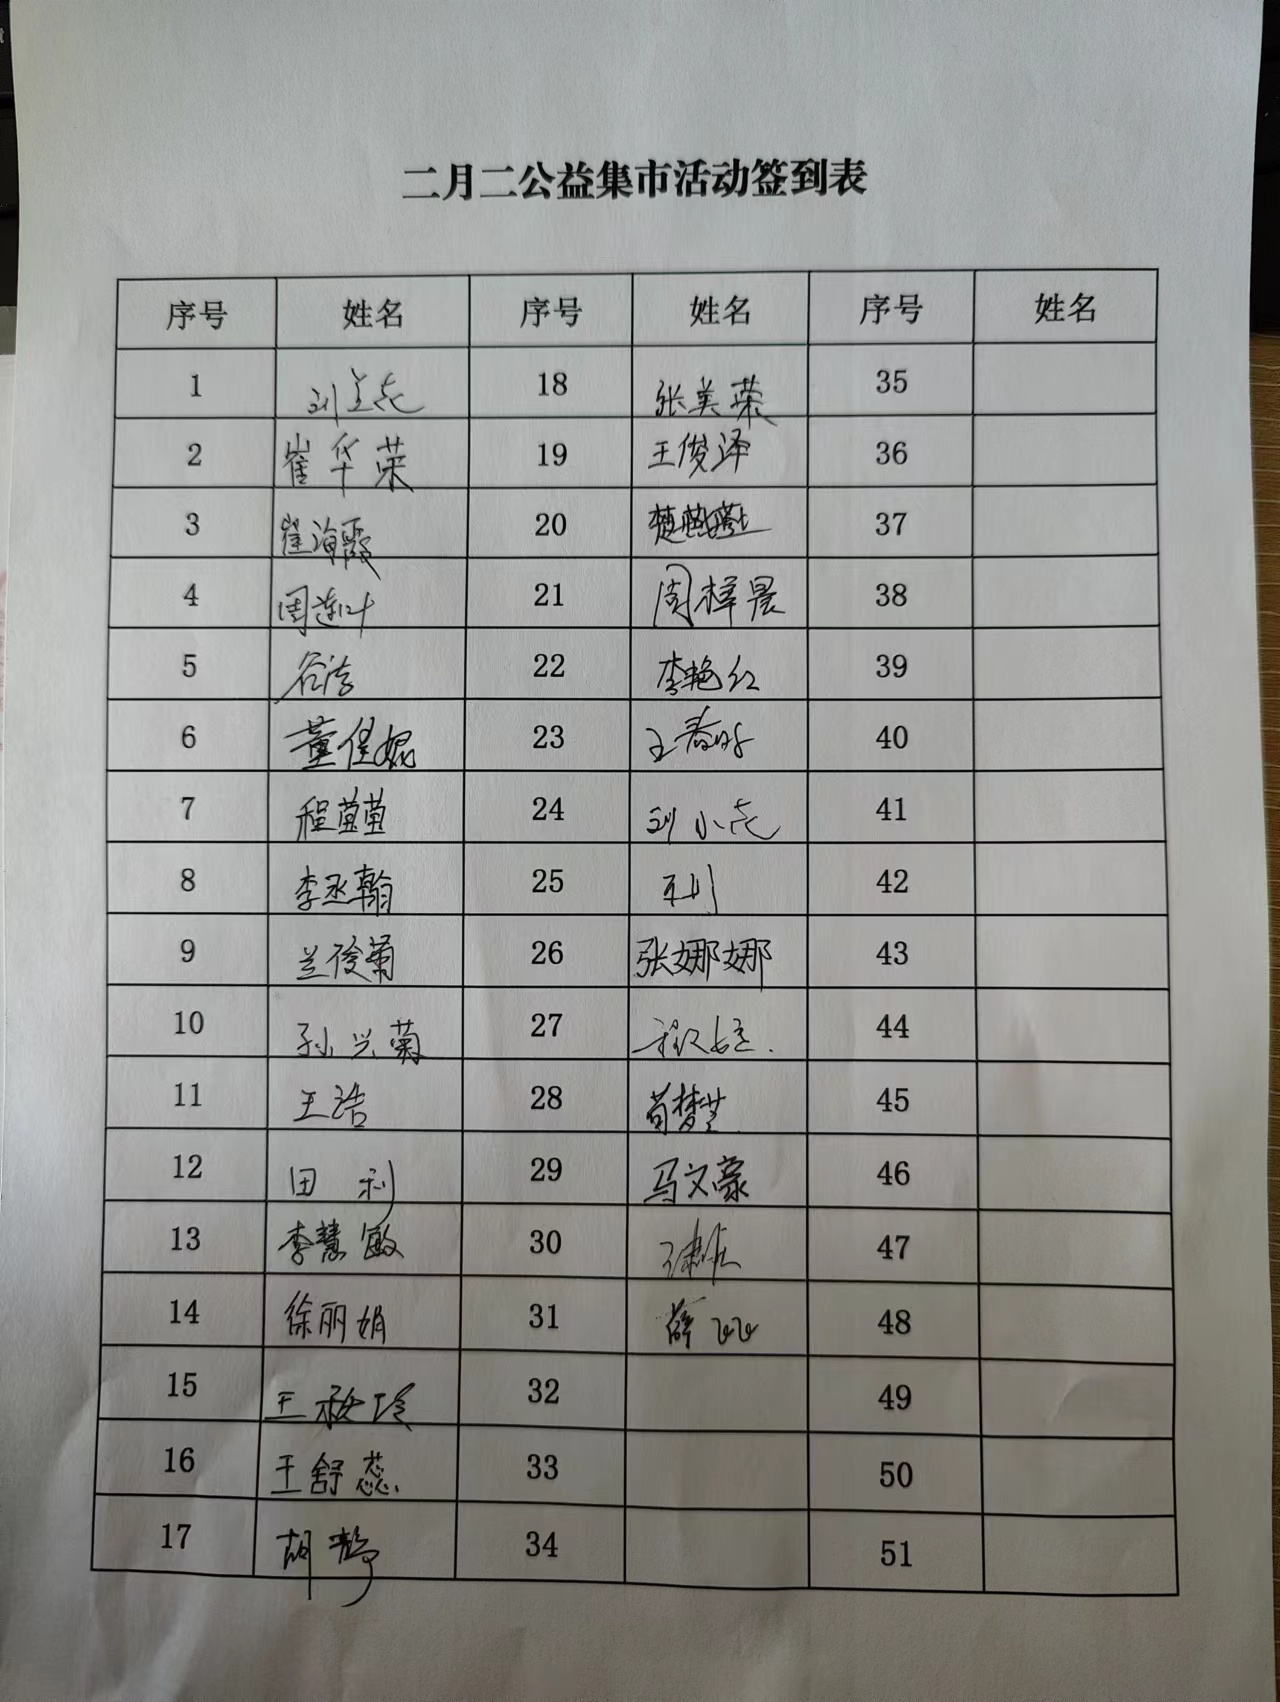 二月二公益集市活动签到表
序号 姓名 序号 姓名 序号 姓名
1 刘兰花 18 张美荣 35
2 崔华荣 19 王俊泽 36
3 崔海霞 20 37
4 周莲叶 21 周梓晨 38
5 谷涛 22 李艳红 39
6 董佳妮 23 王春 40
7 程萱萱 24 刘小花 41
8 李丞翰 25 42
9 兰俊菊 26 张娜娜 43
10 孙兴菊 27 44
11 王浩 28 苟梦芝 45
12 田利 29 马文豪 46
13 李慧敏 30 47
14 徐丽娟 31 薛 48
15 王 玲 32 49
16 王舒蕊 33 50
17 胡 34 51